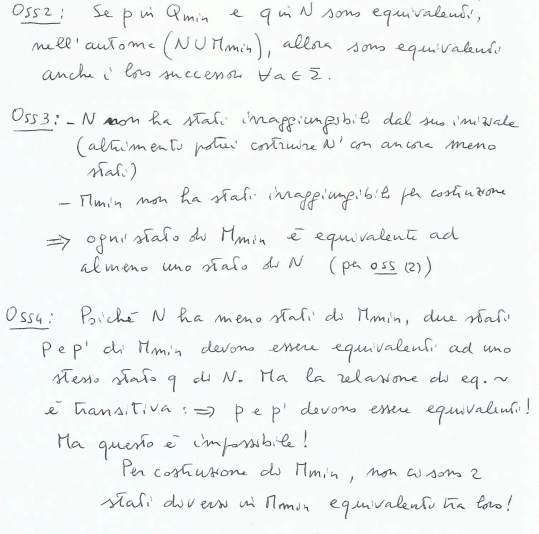 Oss2: Se p in Qmin e q in N sono equivalenti,
nell'automa (N U Mmin), allora sono equivalenti
anche i loro successori ∀a ∈ Σ.
Oss3: - N non ha stati irraggiungibili dal suo iniziale
(altrimenti potrei costruire N' con ancora meno
stati)
- Mmin non ha stati irraggiungibili per costruzione
⇒ ogni stato di Mmin è equivalente ad
almeno uno stato di N (per oss (2))
Oss4: Poiché N ha meno stati di Mmin, due stati
p e p' di Mmin devono essere equivalenti ad uno
stesso stato q di N. Ma la relazione di eq. ~
è transitiva: ⇒ p e p' devono essere equivalenti!
Ma questo è impossibile!
Per costruzione di Mmin, non ci sono 2
stati diversi in Mmin equivalenti tra loro!